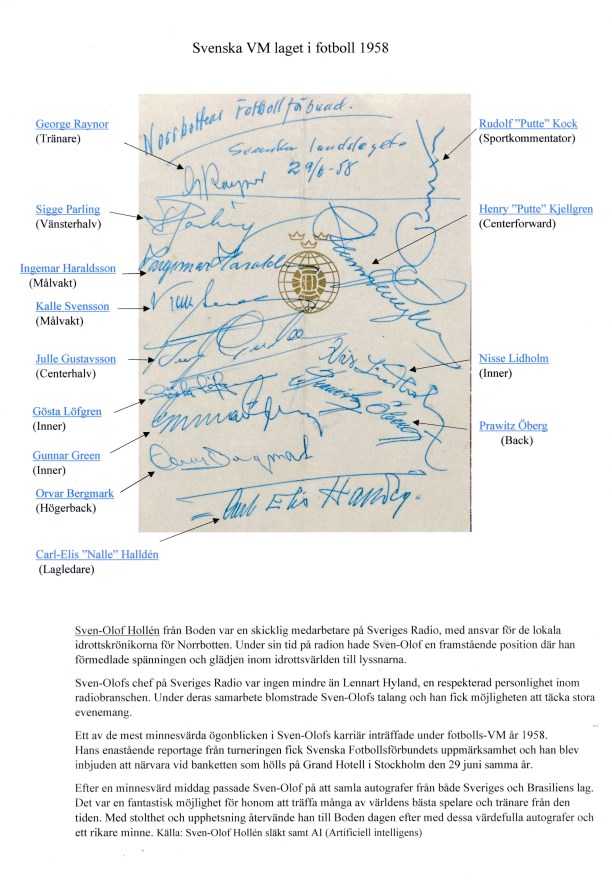 Svenska VM laget i fotboll 1958
Norrbottens Fotbollförbund.
Svenska landslaget
29/6-58
G Raynor
George Raynor
(Tränare)
Rudolf ”Putte” Kock
(Sportkommentator)
Sigge Parling
(Vänsterhalv)
S Parling
Henry ”Putte” Kjellgren
(Centerforward)
Ingemar Haraldsson
(Målvakt)
Ingemar Haralds
Kalle Svensson
(Målvakt)
Julle Gustavsson
(Centerhalv)
Nisse Lidholm
(Inner)
Gösta Löfgren
(Inner)
Gösta Löfgren
Prawitz Öberg
(Back)
Prawitz Öberg
Gunnar Green
(Inner)
Orvar Bergmark
(Högerback)
Orvar Bergmark
Carl-Elis ”Nalle” Halldén
(Lagledare)
Carl Elis Halldén.
Sven-Olof Hollén från Boden var en skicklig medarbetare på Sveriges Radio, med ansvar för de lokala
idrottskrönikorna för Norrbotten. Under sin tid på radion hade Sven-Olof en framstående position där han
förmedlade spänningen och glädjen inom idrottsvärlden till lyssnarna.
Sven-Olofs chef på Sveriges Radio var ingen mindre än Lennart Hyland, en respekterad personlighet inom
radiobranschen. Under deras samarbete blomstrade Sven-Olofs talang och han fick möjligheten att täcka stora
evenemang.
Ett av de mest minnesvärda ögonblicken i Sven-Olofs karriär inträffade under fotbolls-VM år 1958.
Hans enastående reportage från turneringen fick Svenska Fotbollsförbundets uppmärksamhet och han blev
inbjuden att närvara vid banketten som hölls på Grand Hotell i Stockholm den 29 juni samma år.
Efter en minnesvärd middag passade Sven-Olof på att samla autografer från både Sveriges och Brasiliens lag.
Det var en fantastisk möjlighet för honom att träffa många av världens bästa spelare och tränare från den
tiden. Med stolthet och upphetsning återvände han till Boden dagen efter med dessa värdefulla autografer och
ett rikare minne. Källa: Sven-Olof Hollén släkt samt AI (Artificiell intelligens)